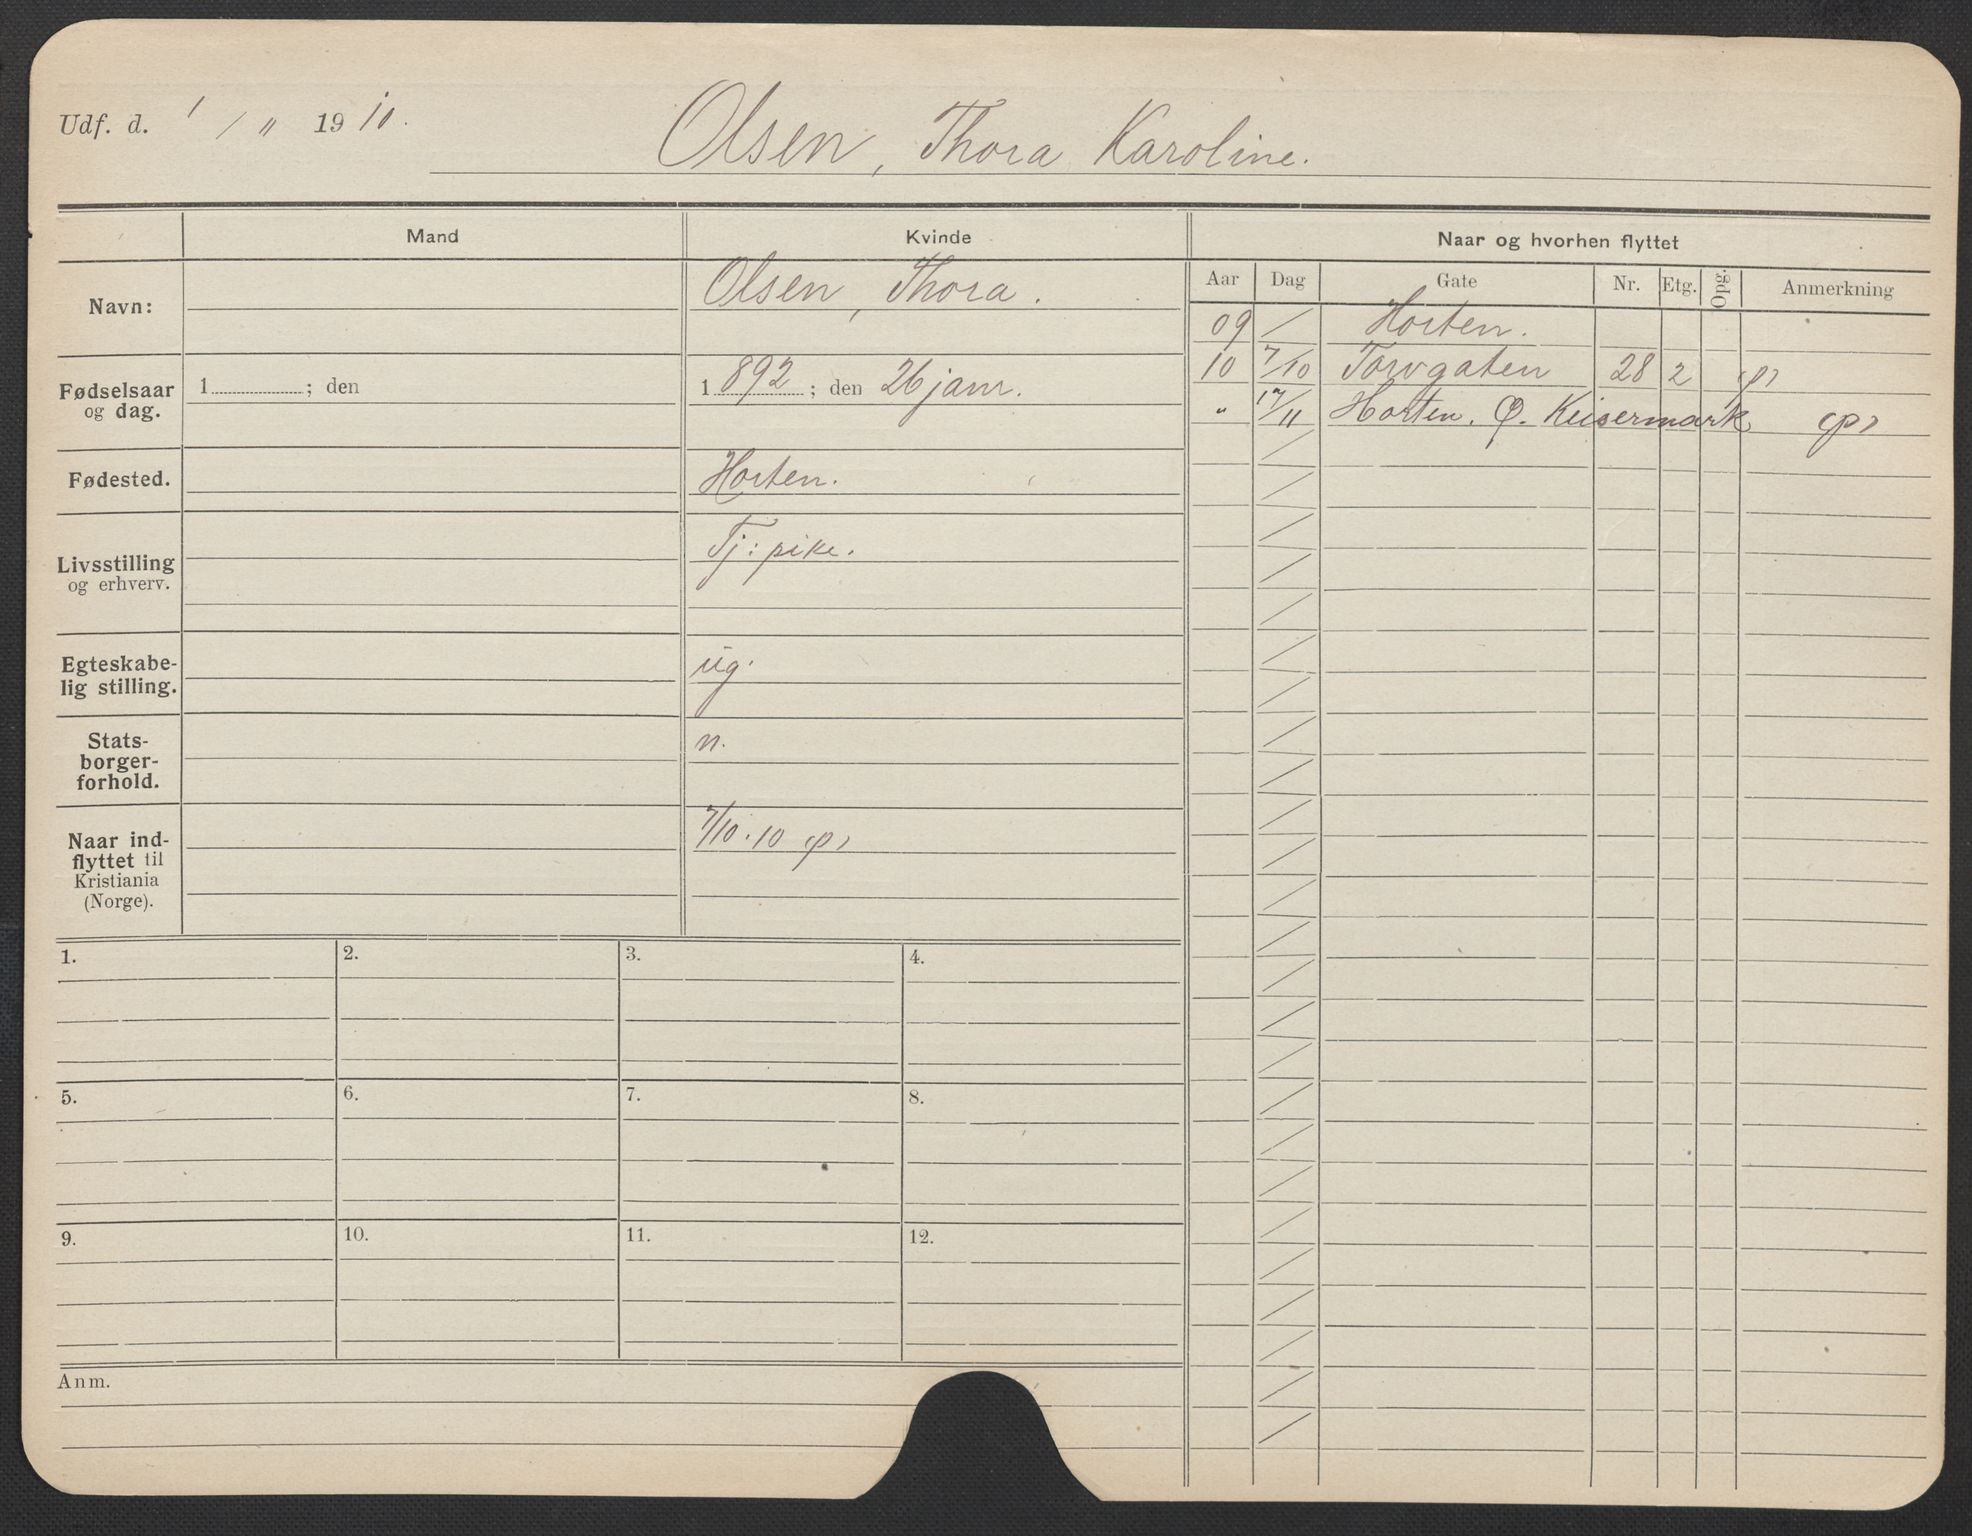 Udf. d. 1 / " 1910.
Olsen, Thora Karoline.
Mand
Kvinde
Naar og hvorhen flyttet
Aar Dag Gate Nr. Etg. Opg. Anmerkning
Navn:
Olsen, Thora.
Fødselsaar
og dag.
1 ; den
1892 ; den 26 janr.
Fødested.
Horten.
Livsstilling
og erhverv.
Tj: pike.
Egteskabe-
lig stilling.
ug.
Stats-
borger-
forhold.
n.
Naar ind-
flyttet til
Kristiania
(Norge).
7/10.10 (p)
09 / Horten.
10 7/10 Torvgaten 28 2 (p)
" 17/11 Horten. Ø. Keisermark (p)
1. 2. 3. 4.
5. 6. 7. 8.
9. 10. 11. 12.
Anm.